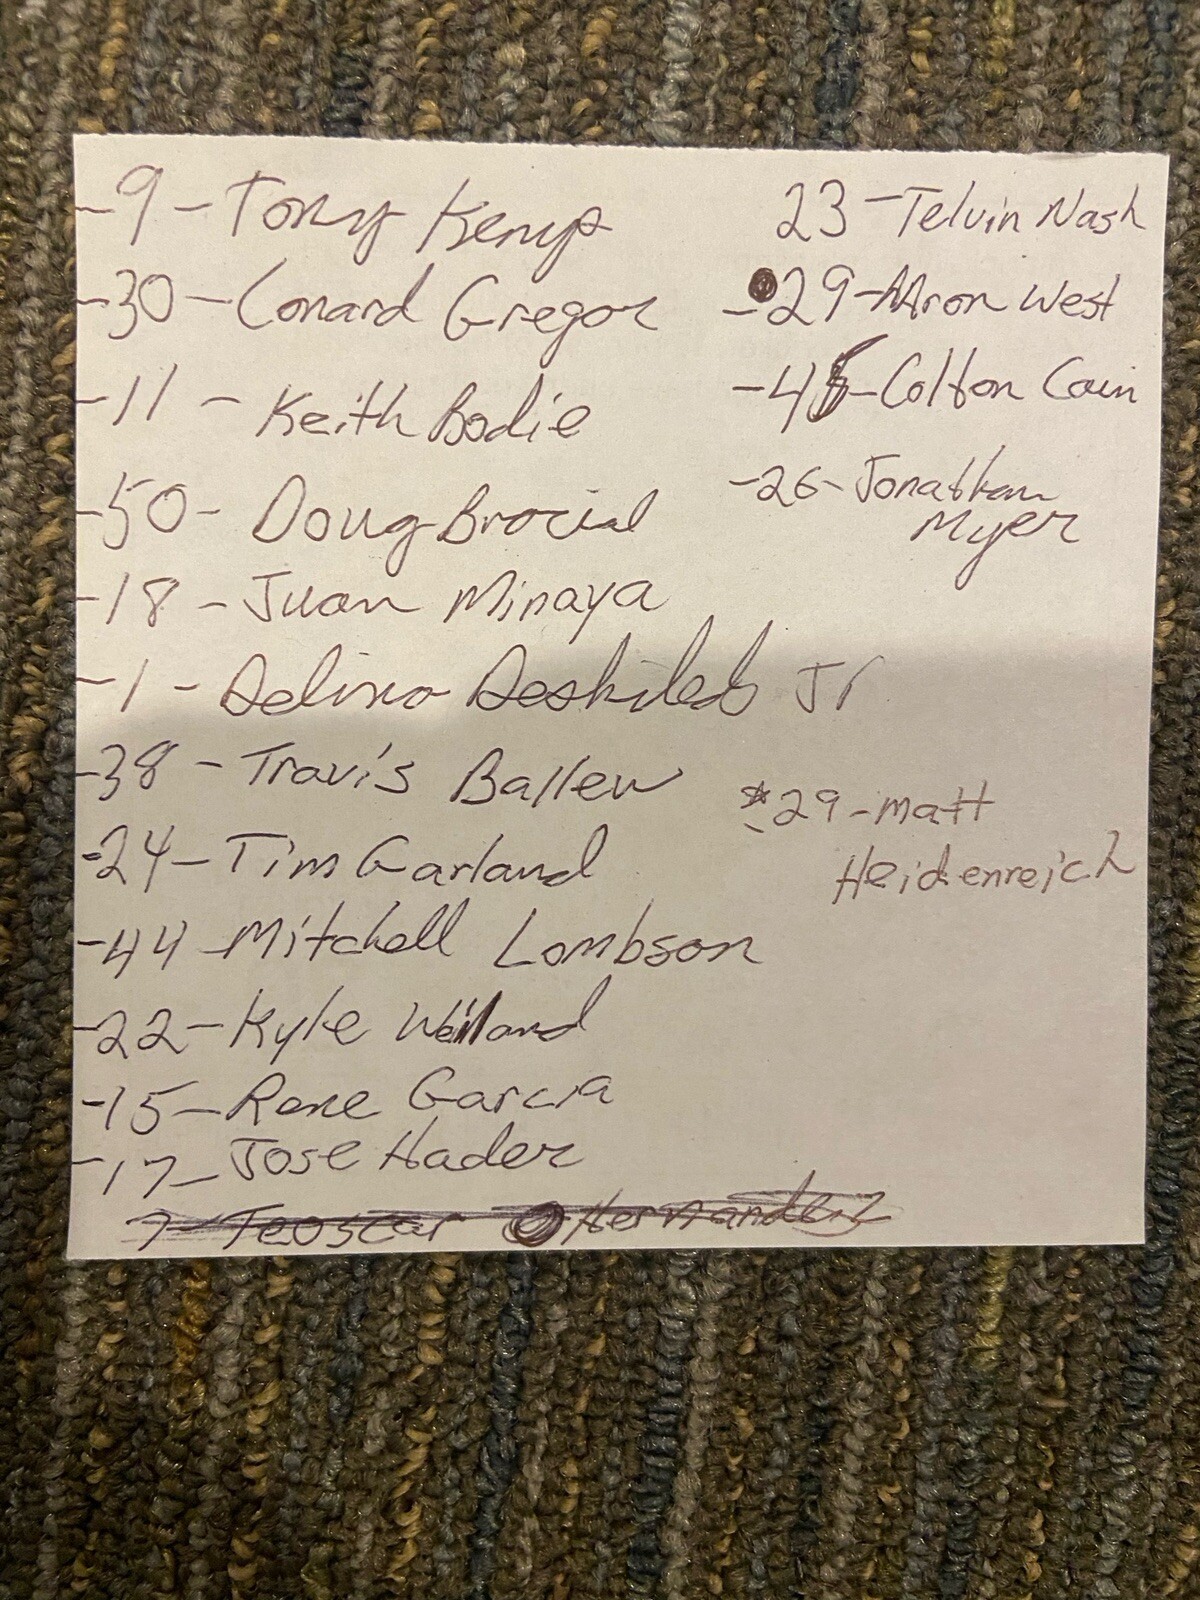 -9 - Tony Kemp
-30 - Conard Gregor
-11 - Keith Bodie
-50 - Doug Brocial
-18 - Juan Minaya
-1 - Delino Deshileds Jr
-38 - Travis Ballew
-24 - Tim Garland
-44 - Mitchell Lombson
-22 - Kyle Weiland
-15 - Rene Garcia
-17 - Jose Hader
7 - Teoscar Hernandez
23 - Telvin Nash
-29 - Aaron West
-4 - Colton Cain
-26 - Jonathan
Myer
*-29 - Matt
Heidenreich